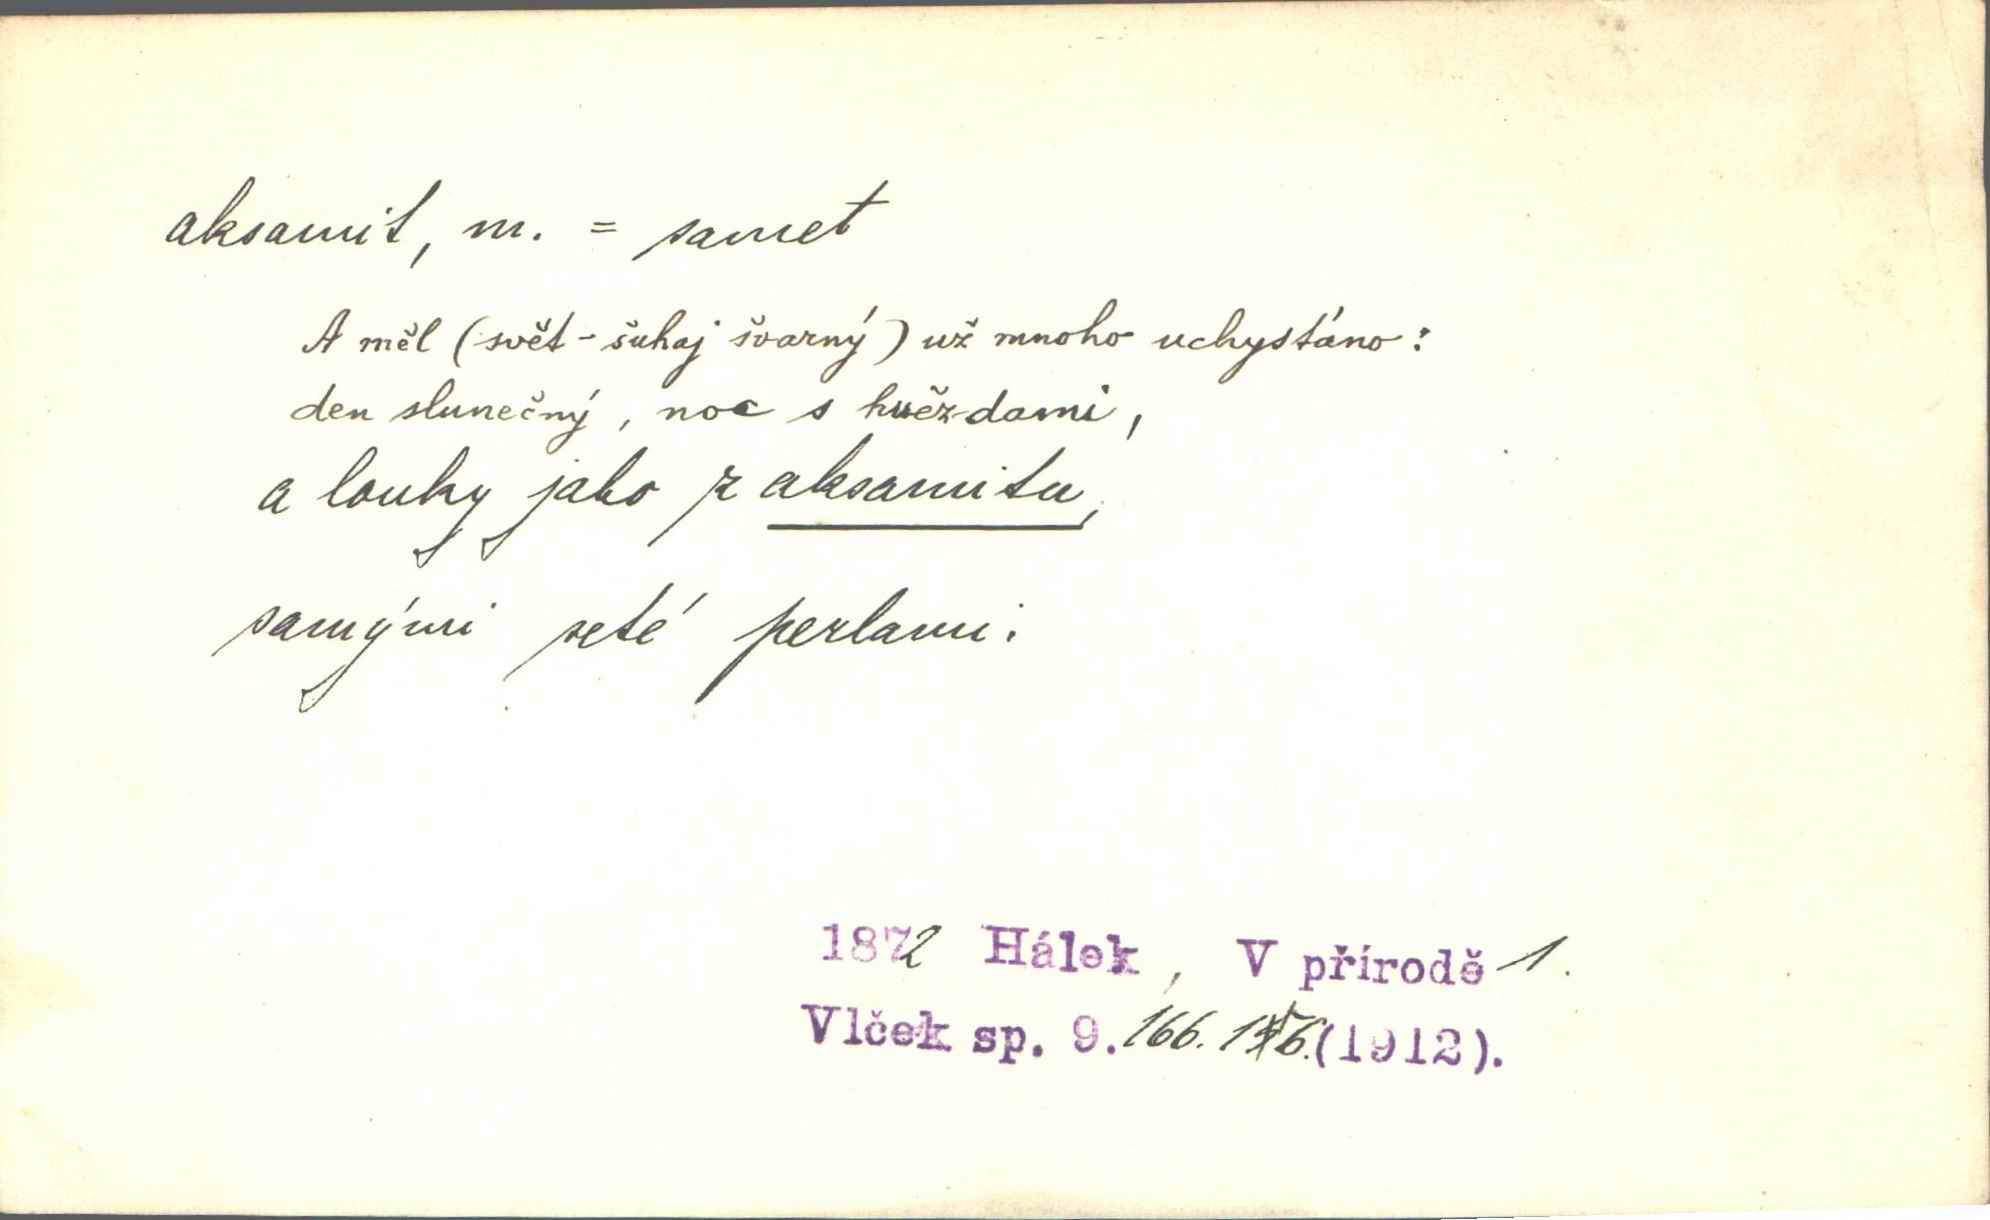 aksamit, m. = samet
A měl (svět - šuhaj švarný) už mnoho uchystáno:
den slunečný, noc s hvězdami,
a louky jako z aksamitu,
samými seté perlami.
1872 Hálek, V přírodě 1.
Vlček sp. 9. 166. (1912).